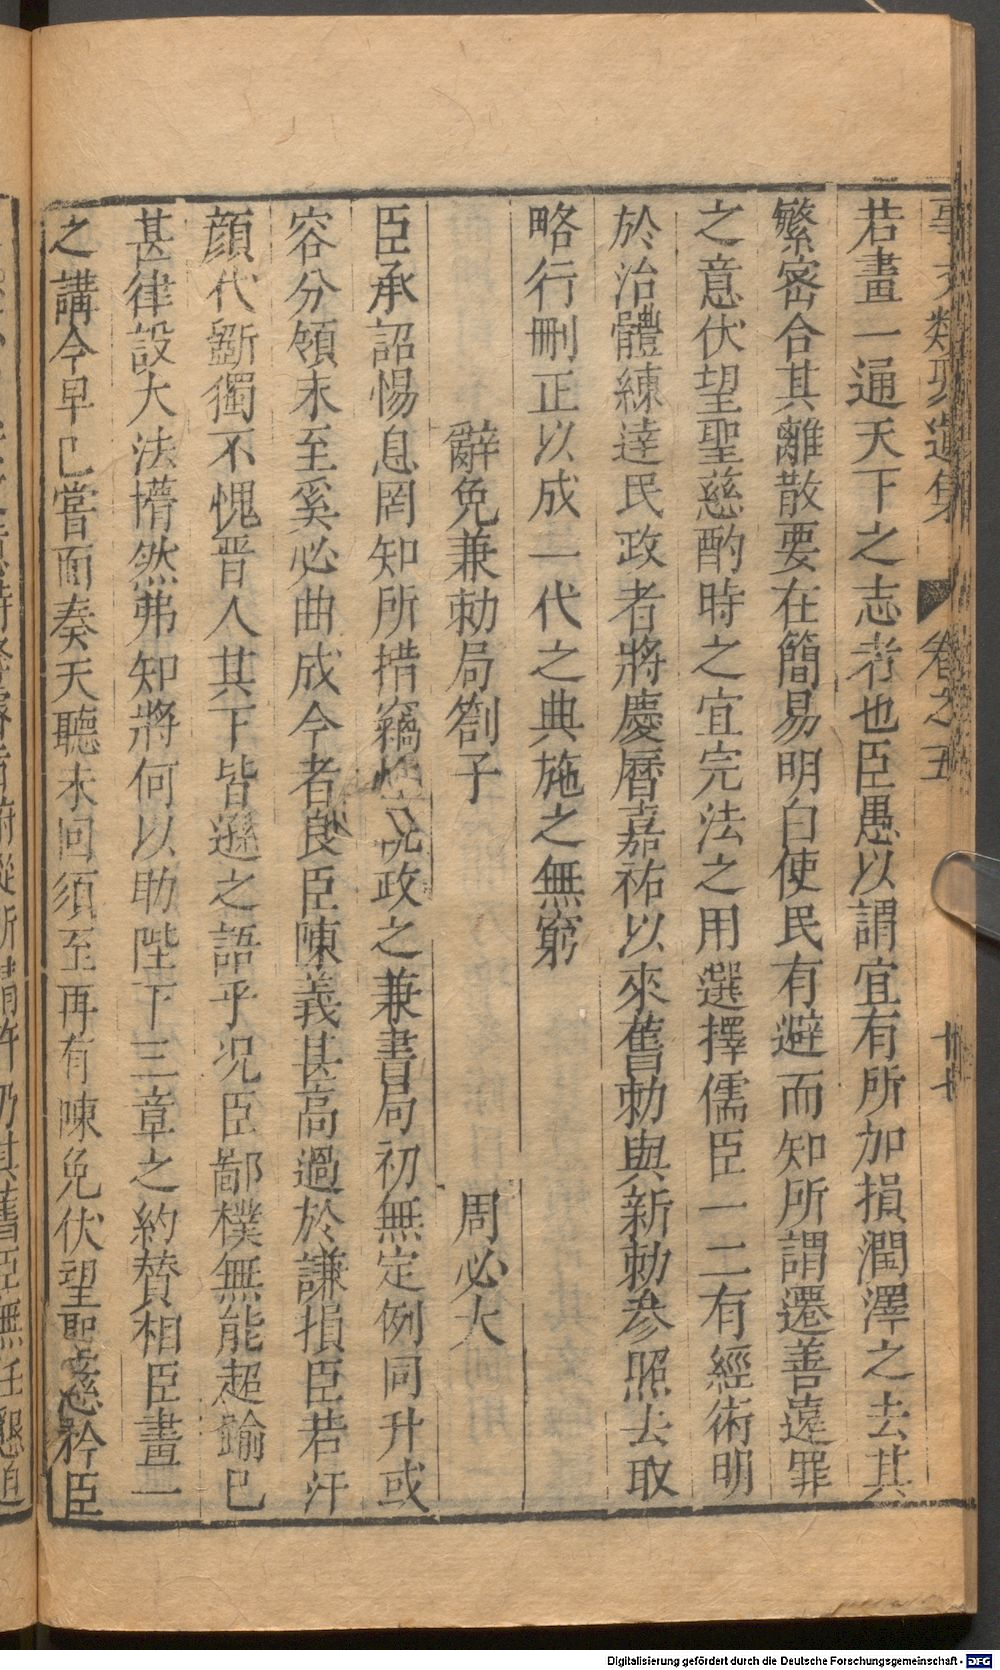 事文類聚遺集 卷之五 廿七
若畫一通天下之志者也臣愚以謂宜有所加損潤澤之去其
繁密合其離散要在簡易明白使民有避而知所謂遷善遠罪
之意伏望聖慈酌時之宜完法之用選擇儒臣一二有經術明
於治體練達民政者將慶曆嘉祐以來舊勑與新勑參照去取
略行刪正以成一代之典施之無窮
辭免兼勑局劄子 周必大
臣承詔惕息罔知所措竊惟 況政之兼書局初無定例同升或
容分領末至奚必曲成今者良臣陳義甚高過於謙損臣若汗
顏代斵獨不愧晋人其下皆遜之語乎况臣鄙樸無能超踰已
甚律設大法懵然弗知將何以助陛下三章之約贊相臣畫一
之講今早已嘗面奏天聽未回須至再有陳免伏望聖慈矜臣
Digitalisierung gefördert durch die Deutsche Forschungsgemeinschaft - DFG